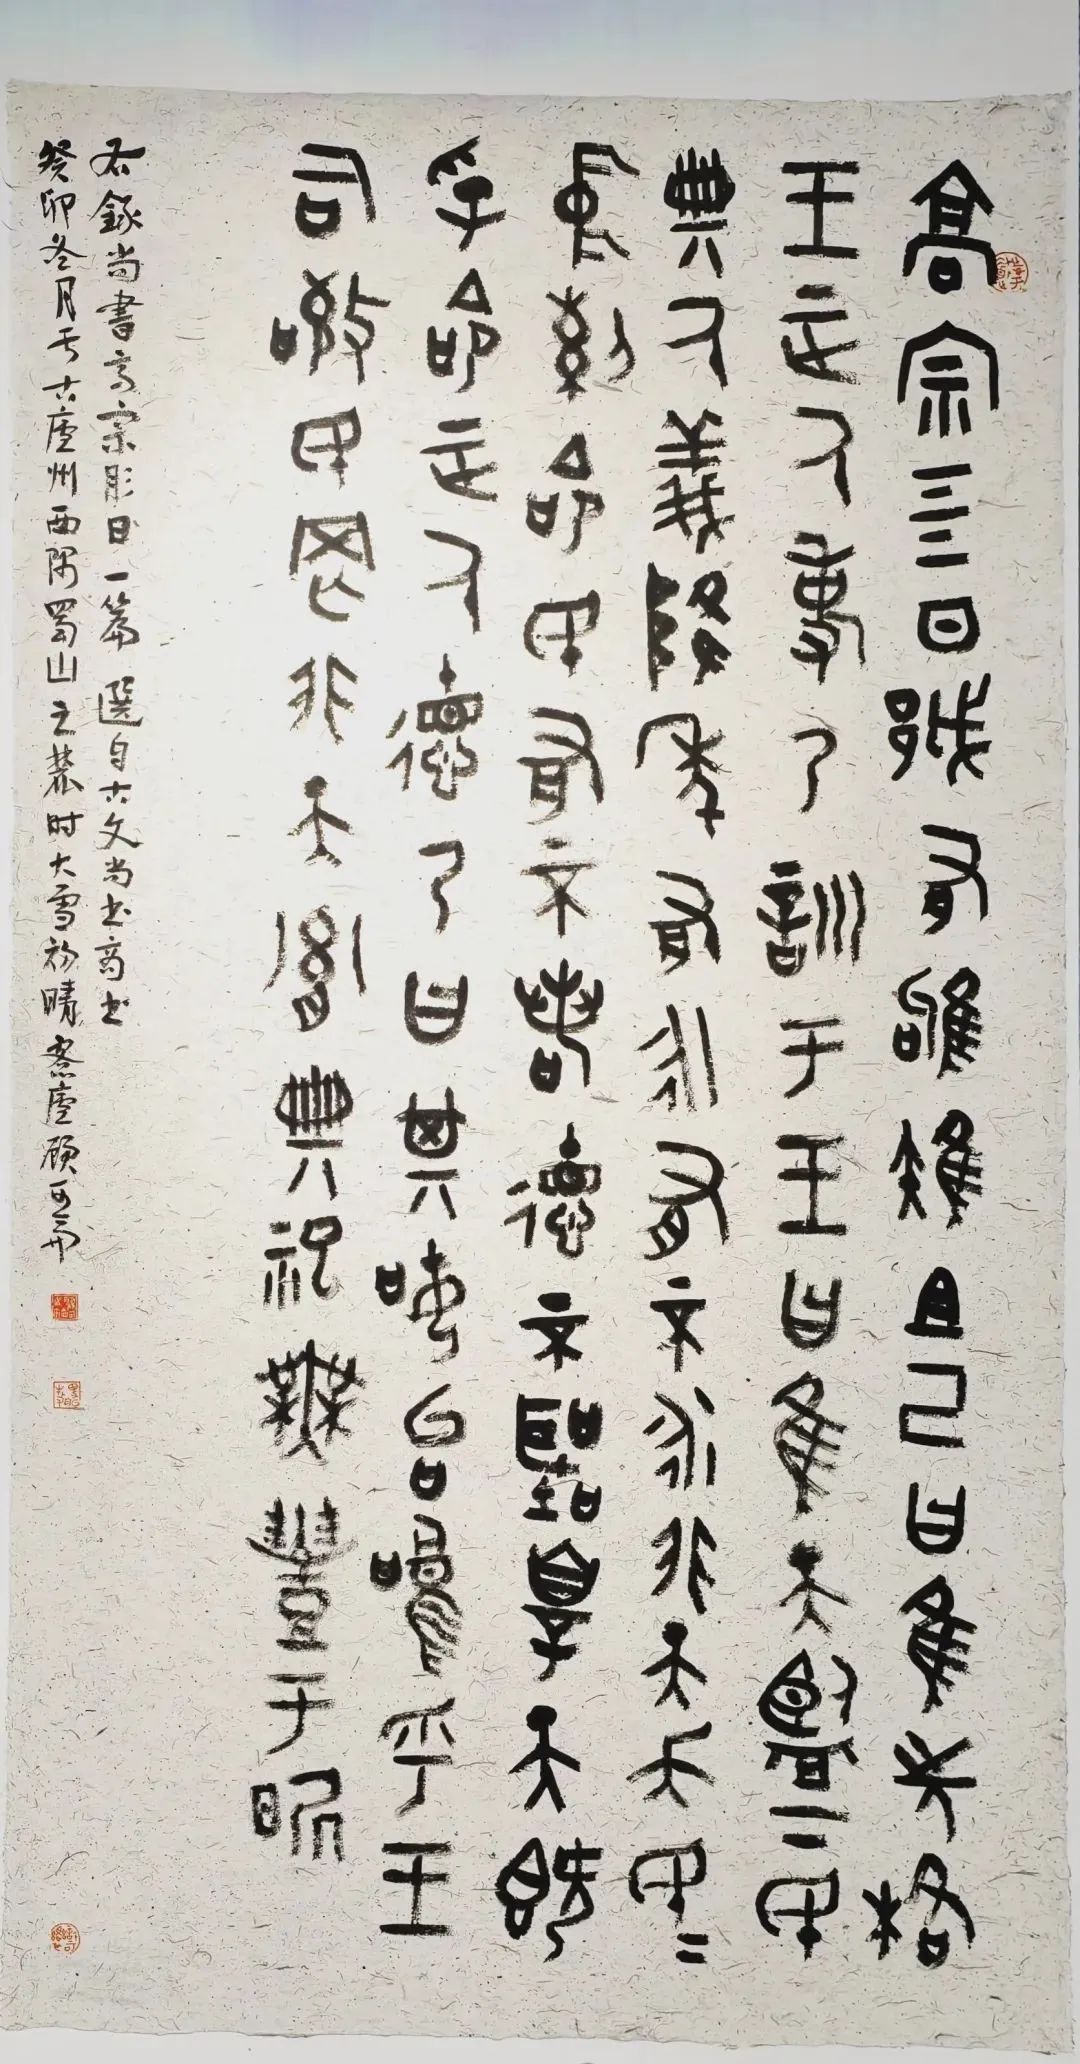 高宗肜日越有雊雉且己曰隹先格
王正厥事乃訓于王曰隹天監下民
典厥義降年有永有不永非天夭民=
中絕命民有不若德不聽辠天既
孚命正厥德乃曰其如台嗚呼王
司敬民罔非天胤典祀無豐于昵
右錄尚書高宗肜日一篇選自古文尚书商书
癸卯冬月于古庐州西隅蜀山之麓时大雪初晴庐顾